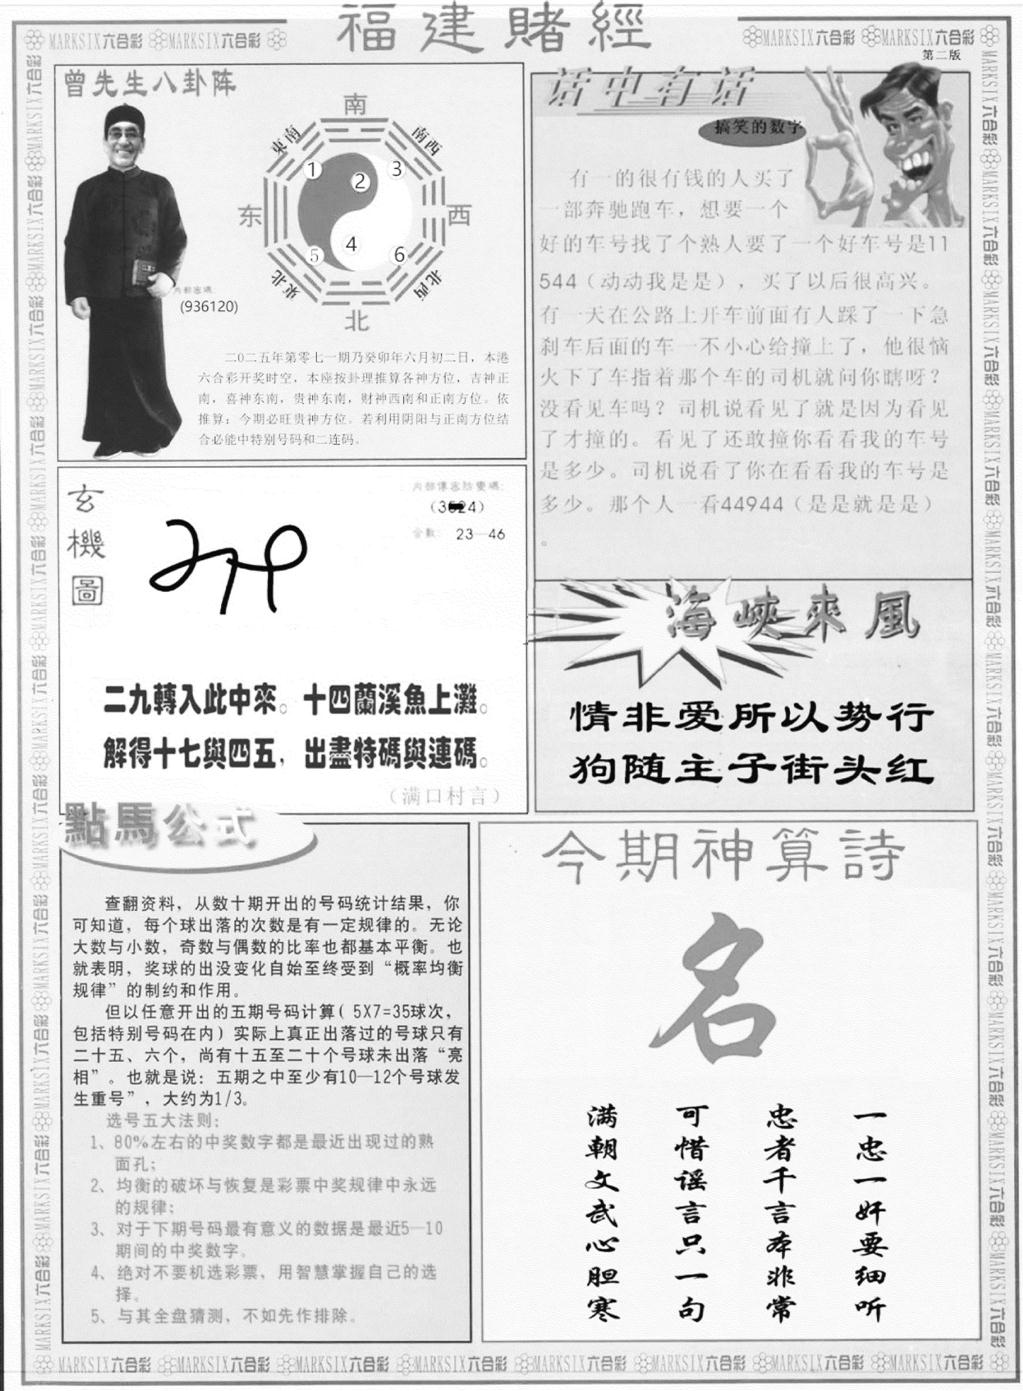 福建賭經
MARKSIX六合彩 MARKSIX六合彩
MARKSIX六合彩 MARKSIX六合彩
第二版
曾先生八卦阵
南
東南
南西
1
2
3
东
西
4
5
6
東北
北西
北
内部密碼:
(936120)
二0二五年第零七一期乃癸卯年六月初二日，本港
六合彩开奖时空，本座按卦理推算各神方位，吉神正
南，喜神东南，贵神东南，财神西南和正南方位。依
推算：今期必旺贵神方位。若利用阴阳与正南方位结
合必能中特别号码和二连码。
话中有话
搞笑的数字
有一的很有钱的人买了
一部奔驰跑车，想要一个
好的车号找了个熟人要了一个好车号是11
544（动动我是是），买了以后很高兴。
有一天在公路上开车前面有人踩了一下急
刹车后面的车一不小心给撞上了，他很恼
火下了车指着那个车的司机就问你瞎呀？
没看见车吗？司机说看见了就是因为看见
了才撞的。看见了还敢撞你看看我的车号
是多少。司机说看了你在看看我的车号是
多少。那个人一看44944（是是就是是）
。
玄機圖
内部傳密防變碼:
合數: 23—46
二九轉入此中來。十四蘭溪魚上灘。
解得十七與四五，出盡特碼與連碼。
（满口村言）
海峽來風
情非爱所以势行
狗随主子街头红
點馬公式
查翻资料，从数十期开出的号码统计结果，你
可知道，每个球出落的次数是有一定规律的。无论
大数与小数，奇数与偶数的比率也都基本平衡。也
就表明，奖球的出没变化自始至终受到“概率均衡
规律”的制约和作用。
但以任意开出的五期号码计算( 5X7=35球次，
包括特别号码在内) 实际上真正出落过的号球只有
二十五、六个，尚有十五至二十个号球未出落“亮
相”。也就是说：五期之中至少有10—12个号球发
生重号”，大约为1/3。
选号五大法则：
1、80%左右的中奖数字都是最近出现过的熟
面孔；
2、均衡的破坏与恢复是彩票中奖规律中永远
的规律；
3、对于下期号码最有意义的数据是最近5—10
期间的中奖数字。
4、绝对不要机选彩票，用智慧掌握自己的选
择。
5、与其全盘猜测，不如先作排除。
今期神算詩
名
一忠一奸要细听
忠者千言本非常
可惜谣言只一句
满朝文武心胆寒